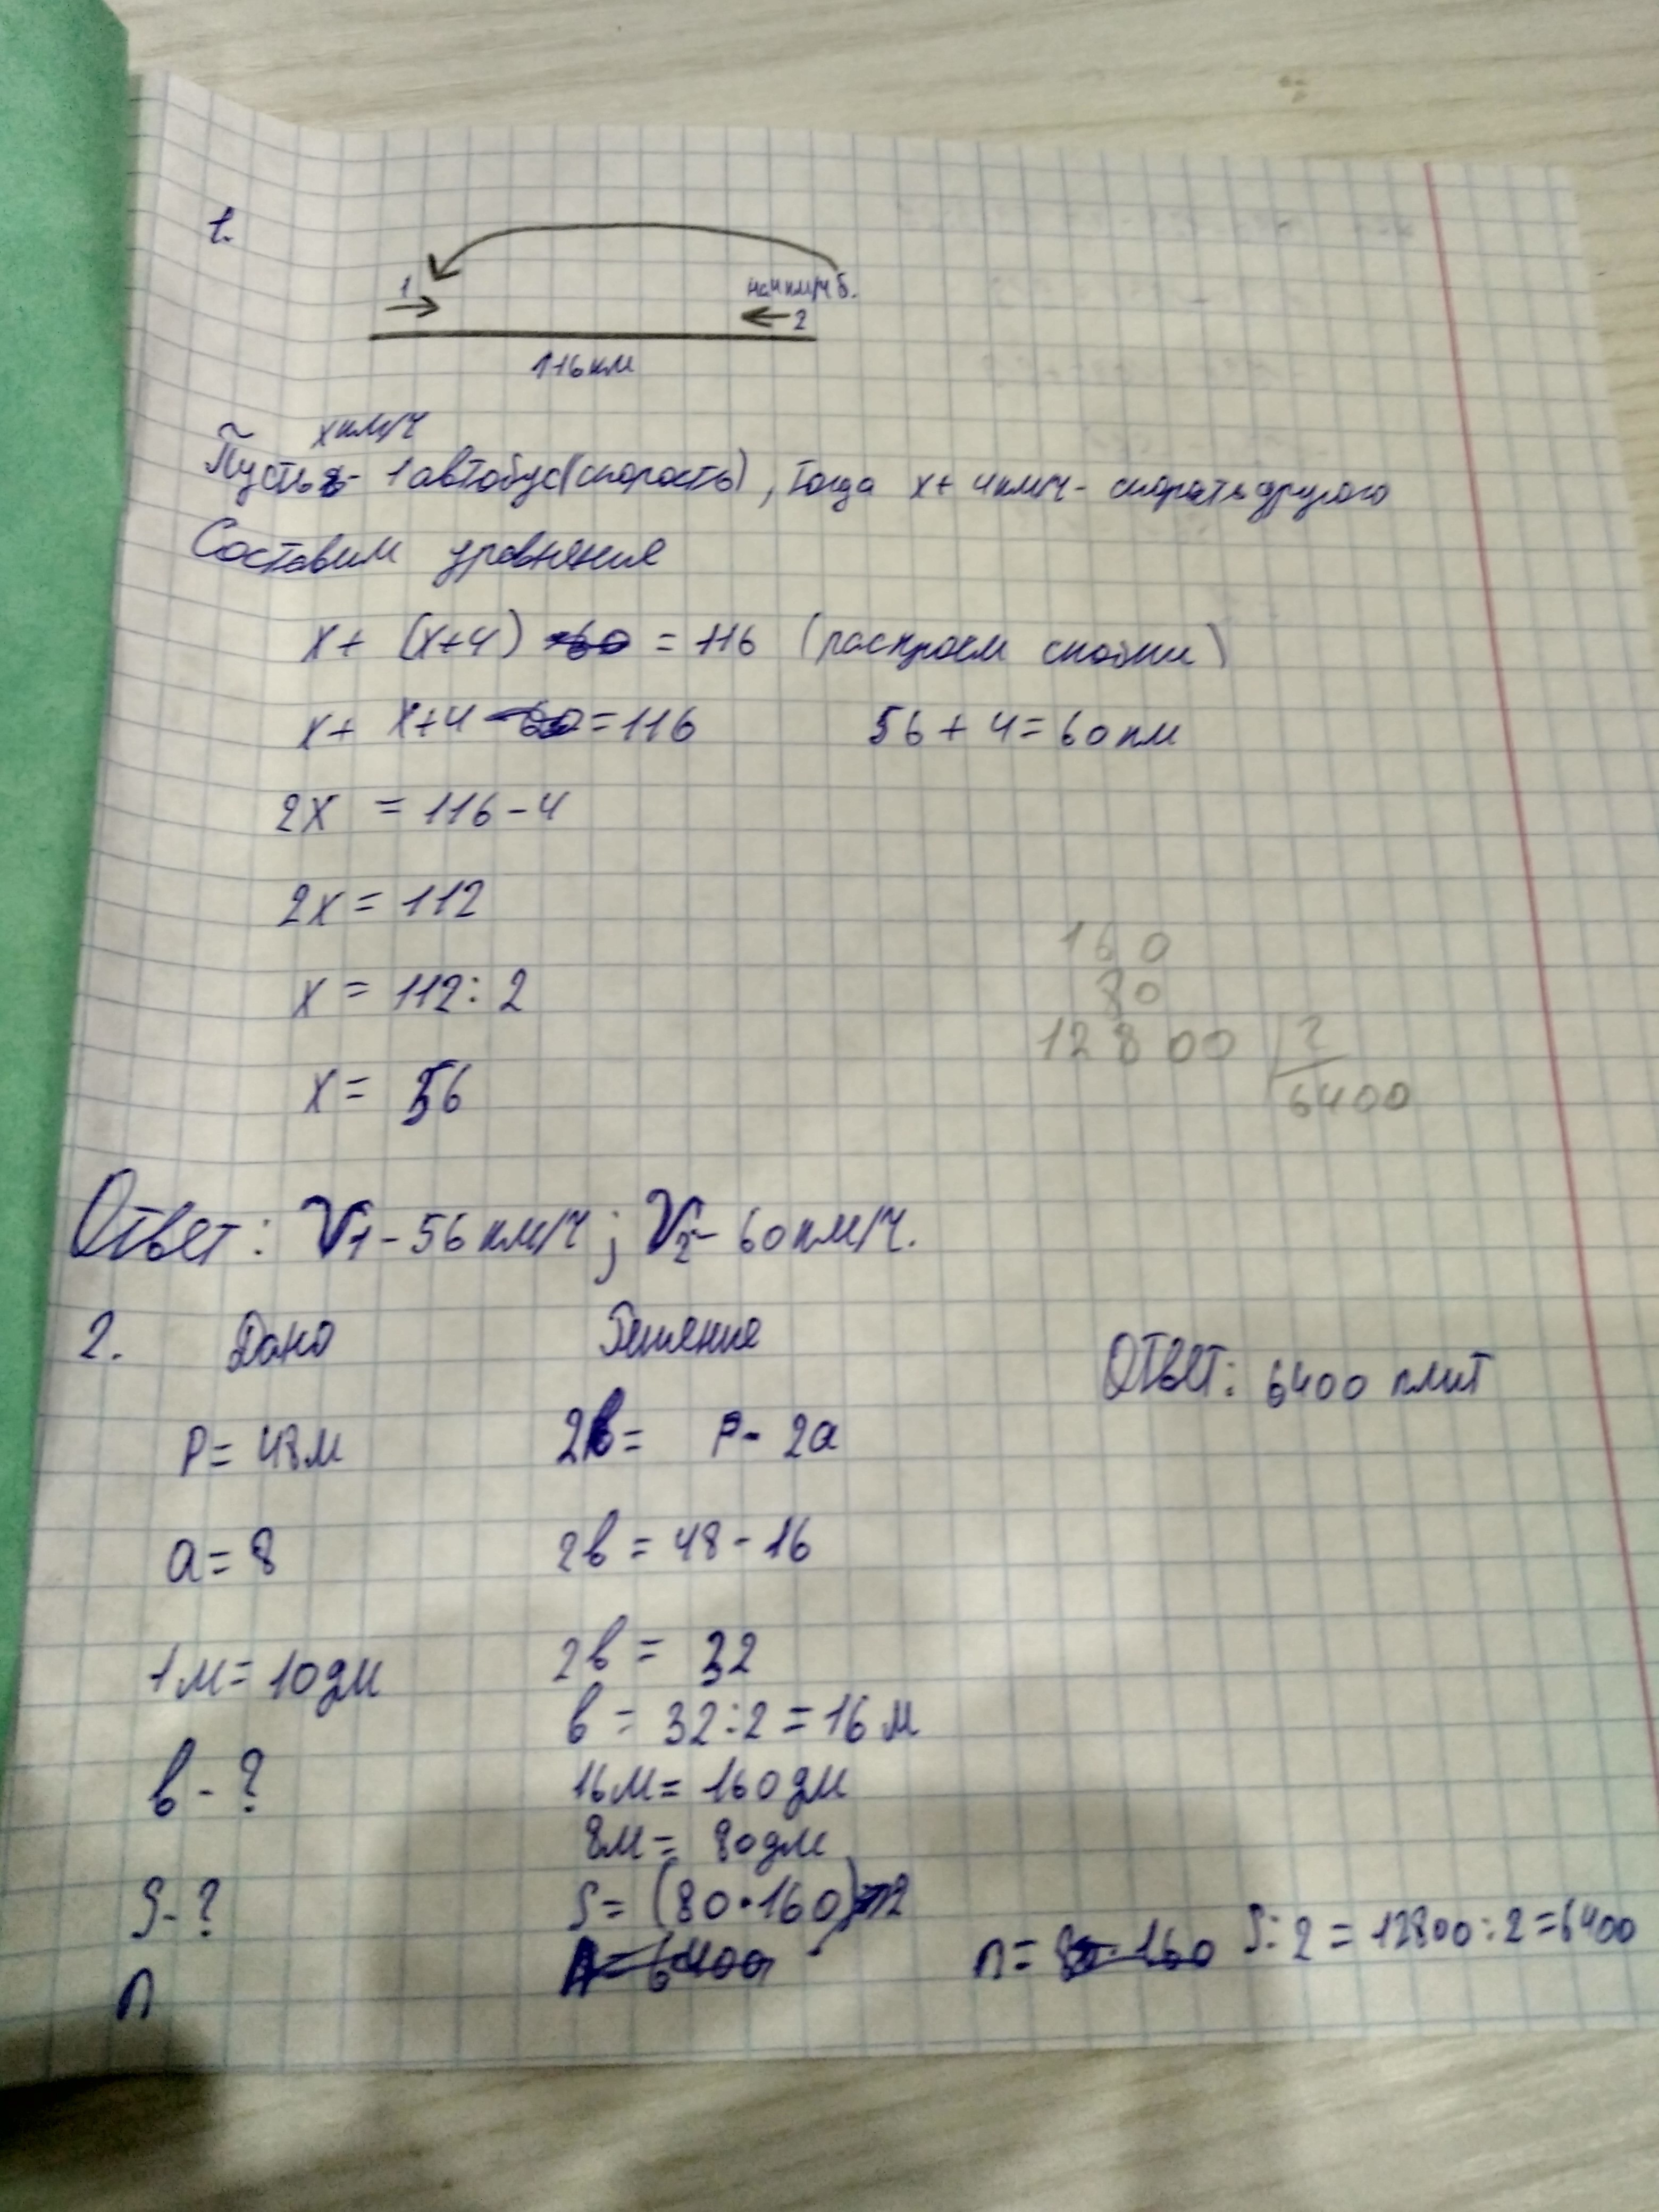 1.
1
на 4 км/ч б.
2
116 км
х км/ч
Пусть - 1 автобус (скорость), тогда х + 4 км/ч - скорость другого
Составим уравнения
х + (х+4) = 116 (раскроем скобки)
х + х+4 = 116
56 + 4 = 60 км
2х = 116 - 4
2х = 112
х = 112 : 2
х = 56
160
80
12800 2
6400
Ответ: V1 - 56 км/ч ; V2 - 60 км/ч.
2. Дано
Решение
Ответ: 6400 плит
P = 48 м
2в = P - 2а
а = 8
2в = 48 - 16
1 м = 10 дм
2в = 32
в = 32 : 2 = 16 м
в - ?
16 м = 160 дм
8 м = 80 дм
S - ?
S = (80 · 160)
n
n = 80 · 160 S : 2 = 12800 : 2 = 6400